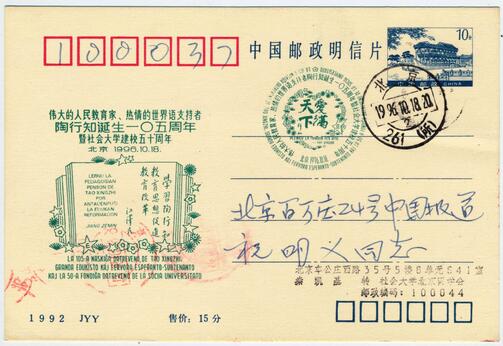 100037
中国邮政明信片
10分
中国邮政 CHINA
伟大的人民教育家、热情的世界语支持者
陶行知诞生一〇五周年
暨社会大学建校五十周年
北京 1996.10.18.
爱满
天下
北京
1996.10.18.20
261 (所)
LERNU LA
PEDAGOGIAN
PENSON DE
TAO XINGZHI
POR
ANTAŬENPUŜI
LA EDUKAN
REFORMACION
JIANG ZEMIN
学习陶行知
教育思想促进
教育改革
江泽民
LA 105-A NASKIĜA DATREVENO DE TAO XINGZHI,
GRANDA EDUKISTO KAJ FERVORA ESPERANTO-SUBTENANTO
KAJ LA 50-A FONDIĜA DATREVENO DE LA SOCIA UNIVERSITATO
北京百万庄24号中国报道
祝明义同志
北京车公庄西路35号5楼8单元641室
转 社会大学北京同学会
邮政编码:100044
1992 JYY
售价:15分